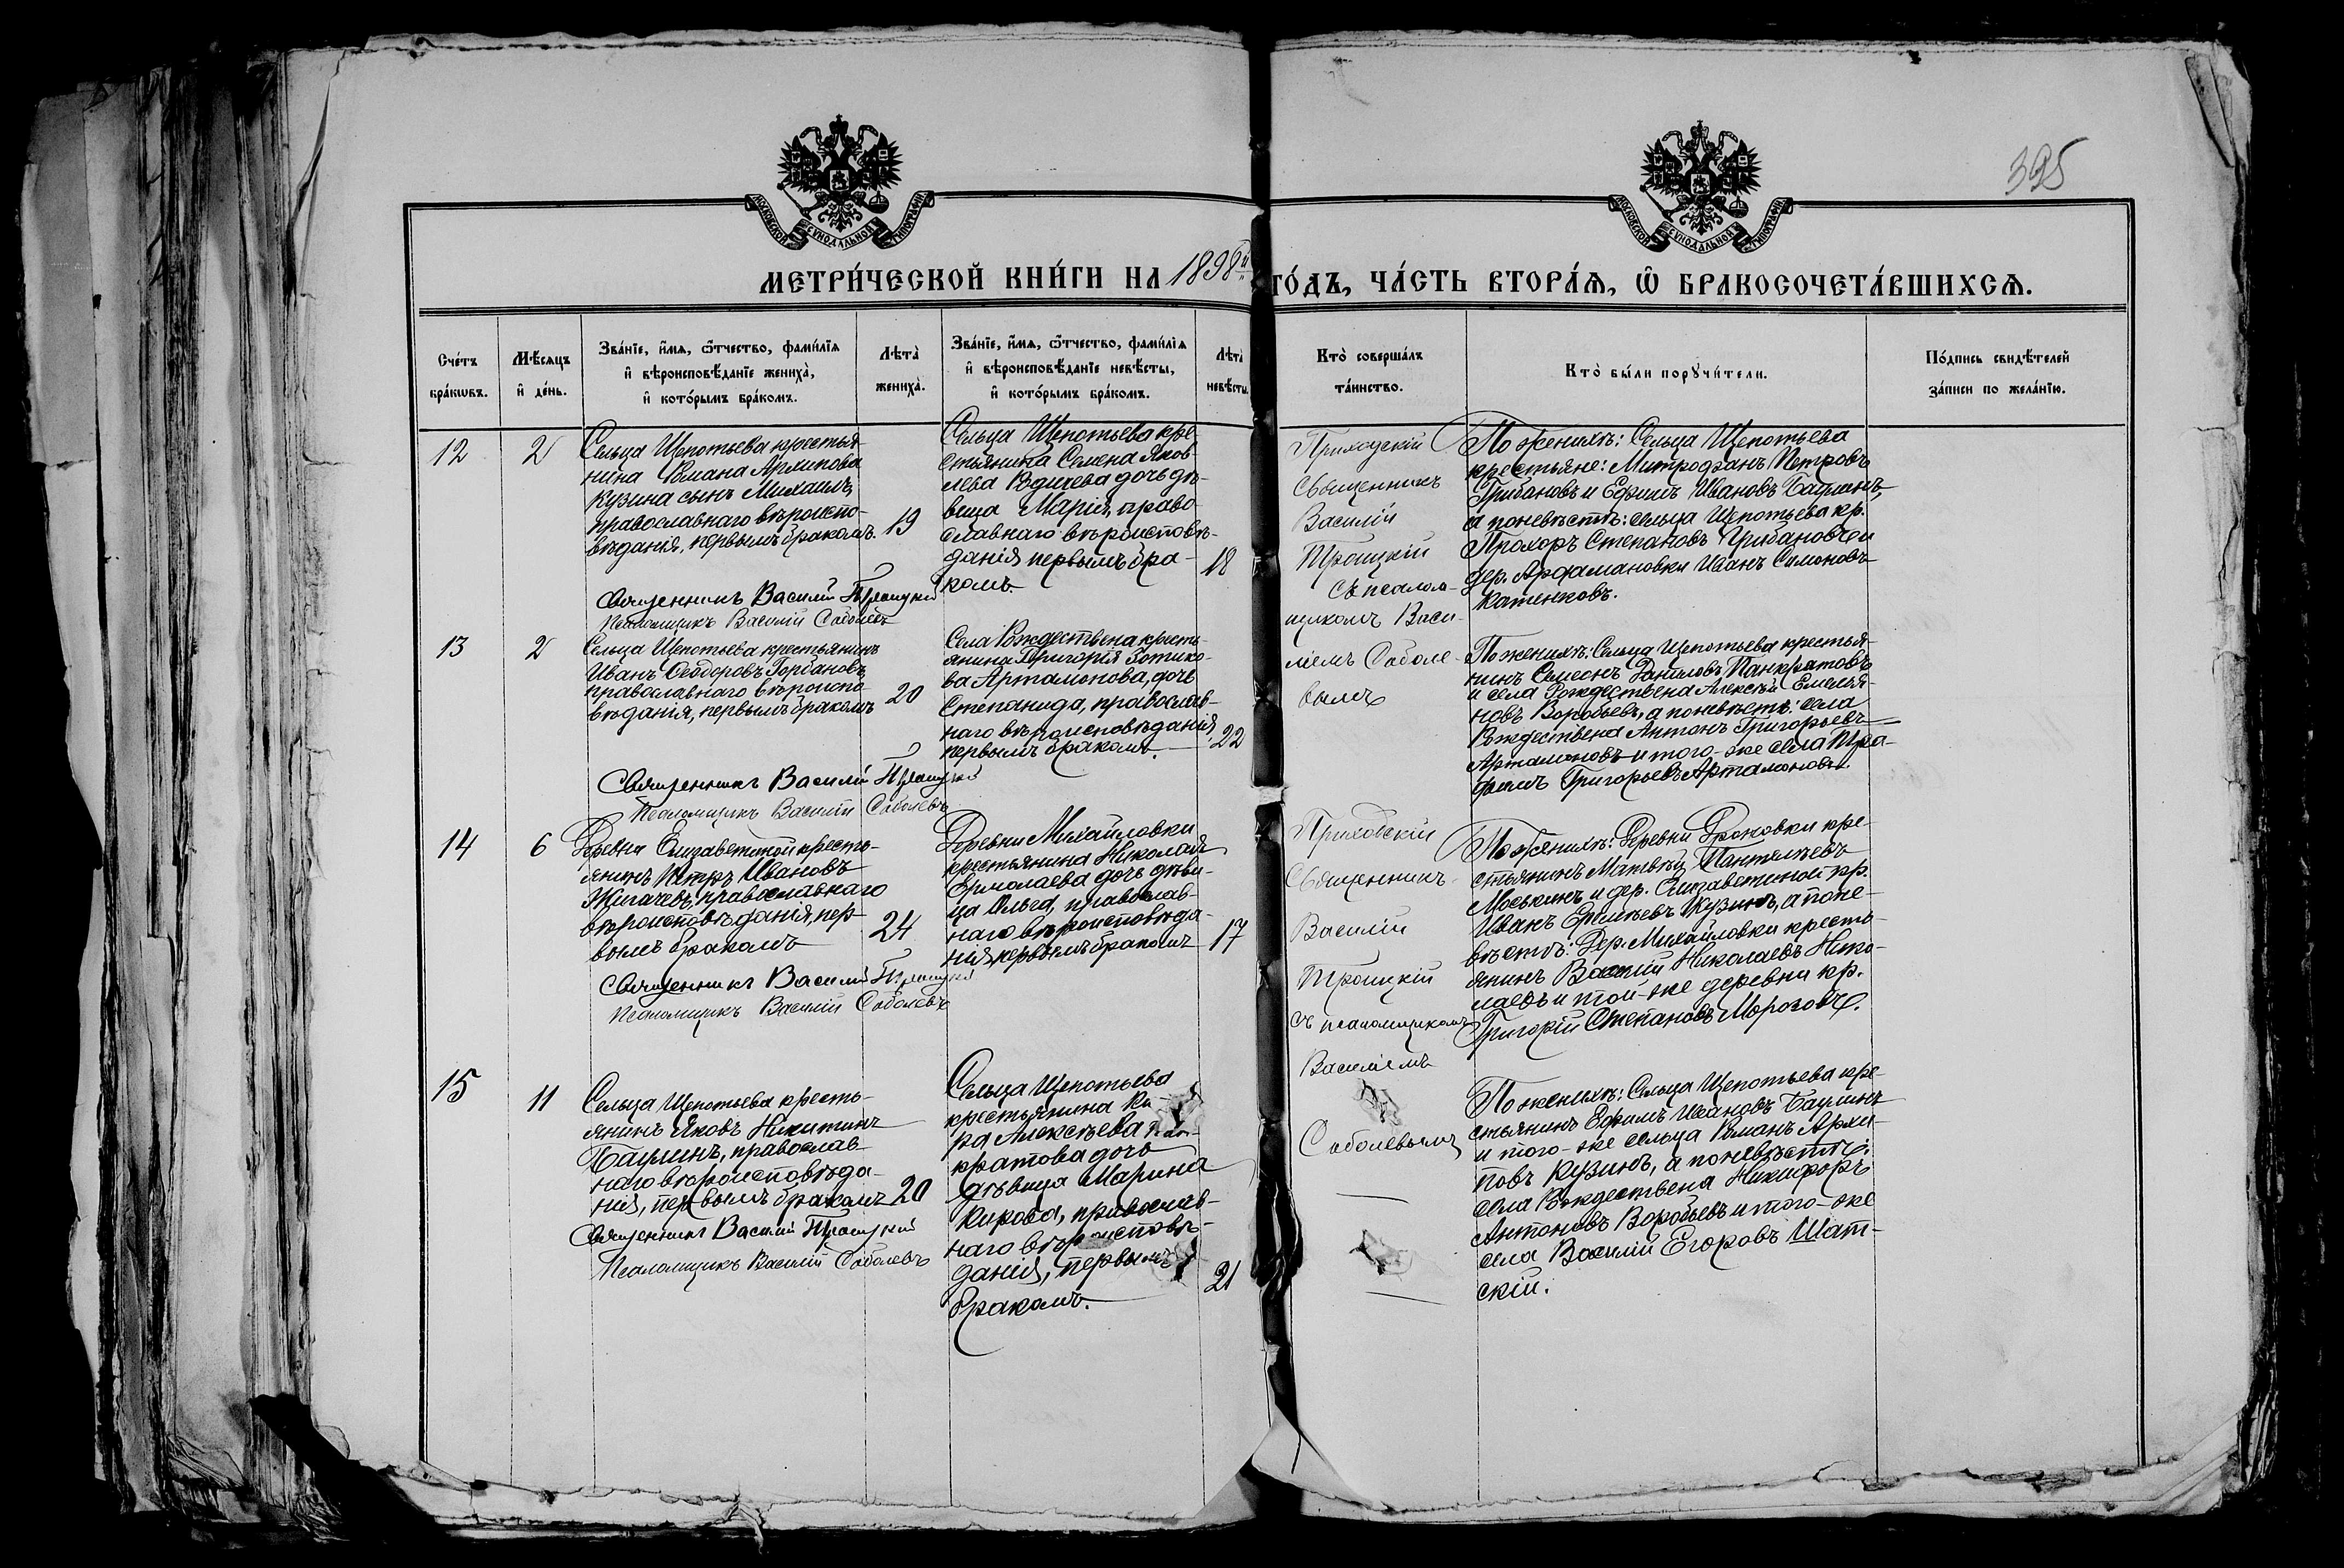 395
МОСКОВСКОЙ СѴНОДАЛЬНОЙ ТИПОГРАФІИ
МОСКОВСКОЙ СѴНОДАЛЬНОЙ ТИПОГРАФІИ
МЕТРИ́ЧЕСКОЙ КНИ́ГИ НА 1898й ГО́ДЪ, ЧА́СТЬ ВТОРА́Ѧ, Ѡ҆ БРАКОСОЧЕТА́ВШИХСѦ.
Сче́тъ
бра́кѡвъ.
Мѣ́сѧцъ
и҆ де́нь.
Зва́нїе, и҆́мѧ, ѻ҆́тчество, фами́лїѧ
и҆ вѣроисповѣ́данїе жениха̀,
и҆ кото́рымъ бра́комъ.
Лѣта̀
жениха̀.
Зва́нїе, и҆́мѧ, ѻ҆́тчество, фами́лїѧ
и҆ вѣроисповѣ́данїе невѣ́сты,
и҆ кото́рымъ бра́комъ.
Лѣта̀
невѣ́сты.
Кто̀ соверша́лъ
та́инство.
Кто̀ бы́ли порꙋчи́тели.
По́дпись свидѣ́телей
за́писи по жела́нїю.
12
2
Сельца Щепотьева крестья-
нина Романа Архипова
Кузина сынъ Михаилъ,
православнаго вѣроиспо-
вѣданія, первымъ бракомъ.
19
Священникъ Василій Троицкій
Псаломщикъ Василій Соболевъ
Сельца Щепотьева кре-
стьянина Семена Яков-
лева дочь дѣ-
вица Марія, право-
славнаго вѣроисповѣ-
данія первымъ бра-
комъ.
18
Приходскій
Священникъ
Василій
Троицкій
съ псалом-
щикомъ Васи-
ліемъ Соболе-
вымъ
По женихѣ: Сельца Щепотьева
крестьяне: Митрофанъ Петровъ
Грибановъ и Ефимъ Ивановъ Баулинъ,
а по невѣстѣ: сельца Щепотьева кр.
Прохоръ Степановъ Грибановъ и
дер. Арфамановки Иванъ Симоновъ
Катенковъ.
13
2
Сельца Щепотьева крестьянинъ
Иванъ Ѳеодоровъ Горбановъ,
православнаго вѣроиспо-
вѣданія, первымъ бракомъ
20
Священникъ Василій Троицкій
Псаломщикъ Василій Соболевъ
Села Рождествена кресть-
янина Григорія Зотико-
ва Артамонова, дочь
Степанида, православ-
наго вѣроисповѣданія,
первымъ бракомъ.
22
По женихѣ: Сельца Щепотьева крестья-
нинъ Семенъ Даниловъ Панкратовъ
и села Рождествена Алексѣй Емелья-
новъ Воробьевъ, а по невѣстѣ: села
Рождествена Антонъ Григорьевъ
Артамоновъ и того-же села Тро-
фимъ Григорьевъ Артамоновъ.
14
6
Деревни Елизаветиной кресть-
янинъ Петръ Ивановъ
Жигачевъ, православнаго
вѣроисповѣданія, пер-
вымъ бракомъ
24
Священникъ Василій Троицкій
Псаломщикъ Василій Соболевъ
Деревни Михайловки
крестьянина Николая
Ермолаева дочь дѣви-
ца Ольга, православ-
наго вѣроисповѣда-
нія, первымъ бракомъ
17
Приходскій
Священникъ
Василій
Троицкій
съ псаломщикомъ
Василіемъ
Соболевымъ
По женихѣ: Деревни Дроновки кре-
стьянинъ Матвѣй Пантелѣевъ
Моськинъ и дер. Елизаветиной кр.
Иванъ Кузинъ, а по не-
вѣстѣ: Дер. Михайловки кресть-
янинъ Василій Николаевъ Нико-
лаевъ и той-же деревни кр.
Григорій Степановъ Морозовъ.
15
11
Сельца Щепотьева кресть-
янинъ Яковъ Никитинъ
Баулинъ, православ-
наго вѣроисповѣда-
нія, первымъ бракомъ
20
Священникъ Василій Троицкій
Псаломщикъ Василій Соболевъ
Сельца Щепотьева
крестьянина Ки-
ра Алексѣева Пан-
кратова дочь
дѣвица Марина
Кирова, православ-
наго вѣроисповѣ-
данія, первымъ
бракомъ.
21
По женихѣ: Сельца Щепотьева кре-
стьянинъ Ефимъ Ивановъ Баулинъ
и того-же сельца Романъ Архи-
повъ Кузинъ, а по невѣстѣ:
села Рождествена Никифоръ
Антоновъ Воробьевъ и того-же
села Василій Егоровъ Шат-
скій.